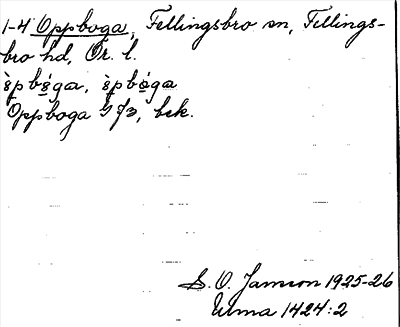 1-4 Oppboga, Fellingsbro sn, Fellings-
bro hd, Ör. l.
Oppboga bek.
S. O. Jansson 1925-26
Uma 1424:2